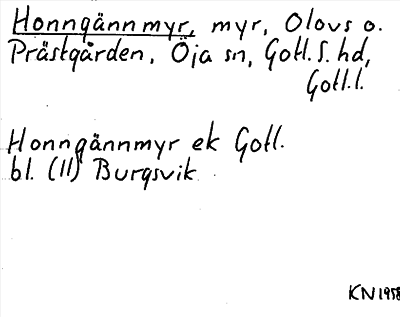 Honngännmyr, myr, Olovs o.
Prästgården, Öja sn, Gotl. S. hd,
Gotl. l.
Honngännmyr ek Gotl.
bl. (11) Burgsvik
KN1958